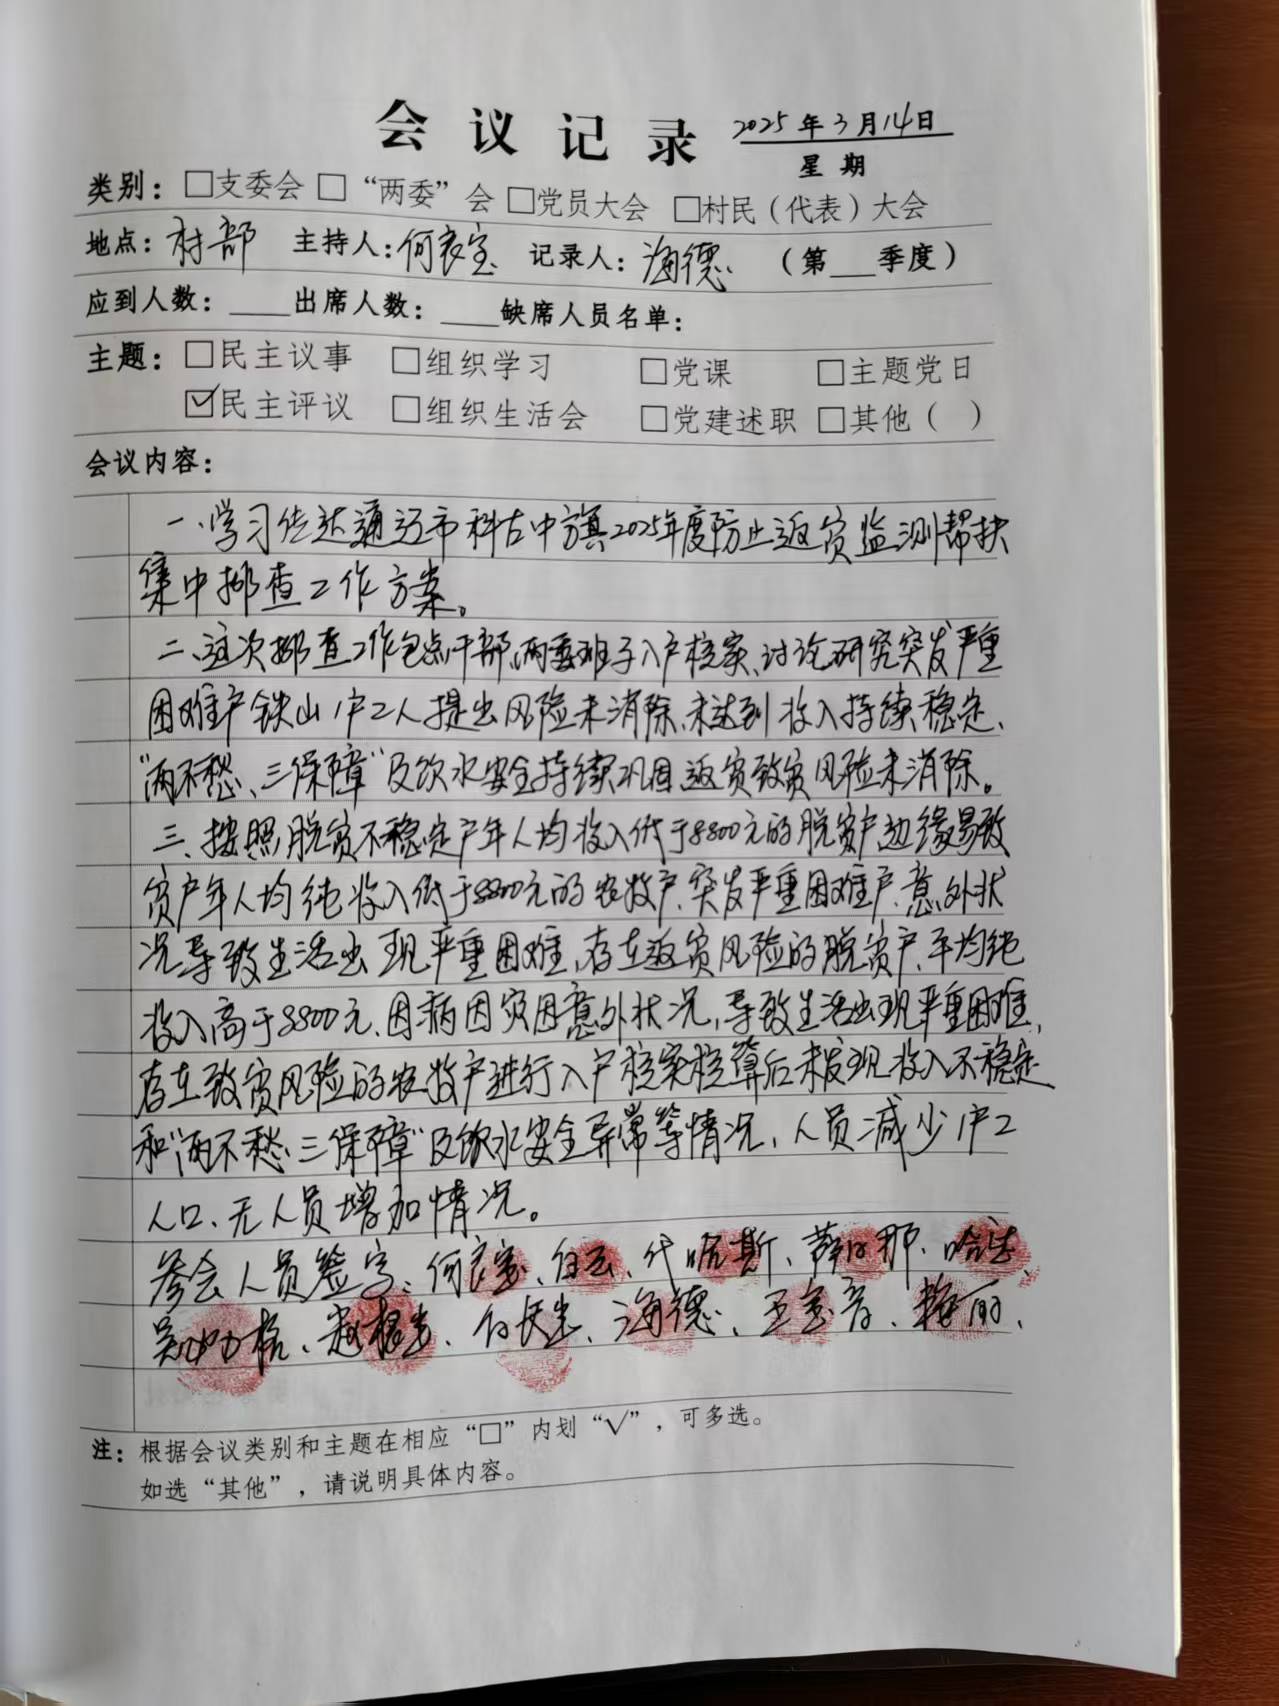 会议记录 2025年3月14日
星期
类别：□支委会 □“两委”会 □党员大会 □村民（代表）大会
地点：村部 主持人：何衣宝 记录人：海德 （第___季度）
应到人数：____出席人数：____缺席人员名单：
主题：□民主议事 □组织学习 □党课 □主题党日
☑民主评议 □组织生活会 □党建述职 □其他（ ）
会议内容：
一、学习传达通辽市科左中旗2025年度防止返贫监测帮扶
集中排查工作方案。
二、这次排查工作包点干部、两委班子入户核实、讨论研究突发严重
困难户铁山1户2人提出风险未消除、未达到收入持续稳定、
“两不愁、三保障”及饮水安全持续巩固返贫致贫风险未消除。
三、按照脱贫不稳定户年人均收入低于8800元的脱贫户边缘易致
贫户年人均纯收入低于8800元的农牧户、突发严重困难户、意外状
况导致生活出现严重困难、存在返贫风险的脱贫户、年均纯
收入高于8800元、因病因灾因意外状况，导致生活出现严重困难，
存在致贫风险的农牧户进行入户核实核算后未发现收入不稳定
和“两不愁、三保障”及饮水安全异常等情况，人员减少1户2
人口、无人员增加情况。
参会人员签字：何衣宝、白云、代哈斯、
海德、王金音、梅丽、
注：根据会议类别和主题在相应“□”内划“√”，可多选。
如选“其他”，请说明具体内容。